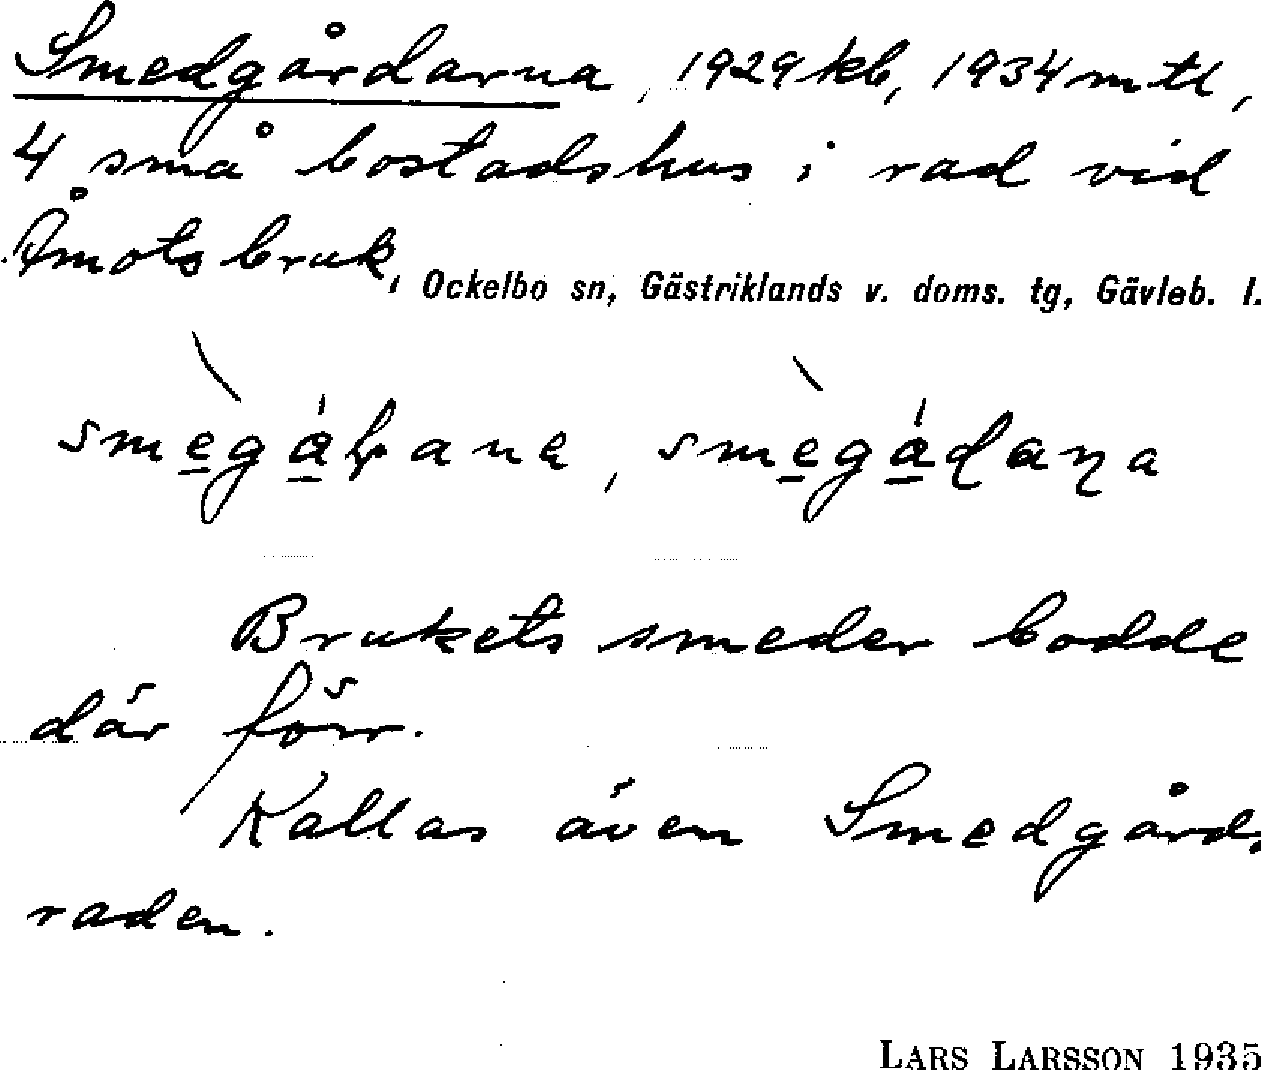 Smedgårdarna, 1929 kb, 1934 mtl,
4 små bostadshus i rad vid
Åmots bruk, Ockelbo sn, Gästriklands v. doms. tg, Gävleb. l.
Brukets smeder bodde
där förr.
Kallas även Smedgårds
raden.
LARS LARSSON 1935